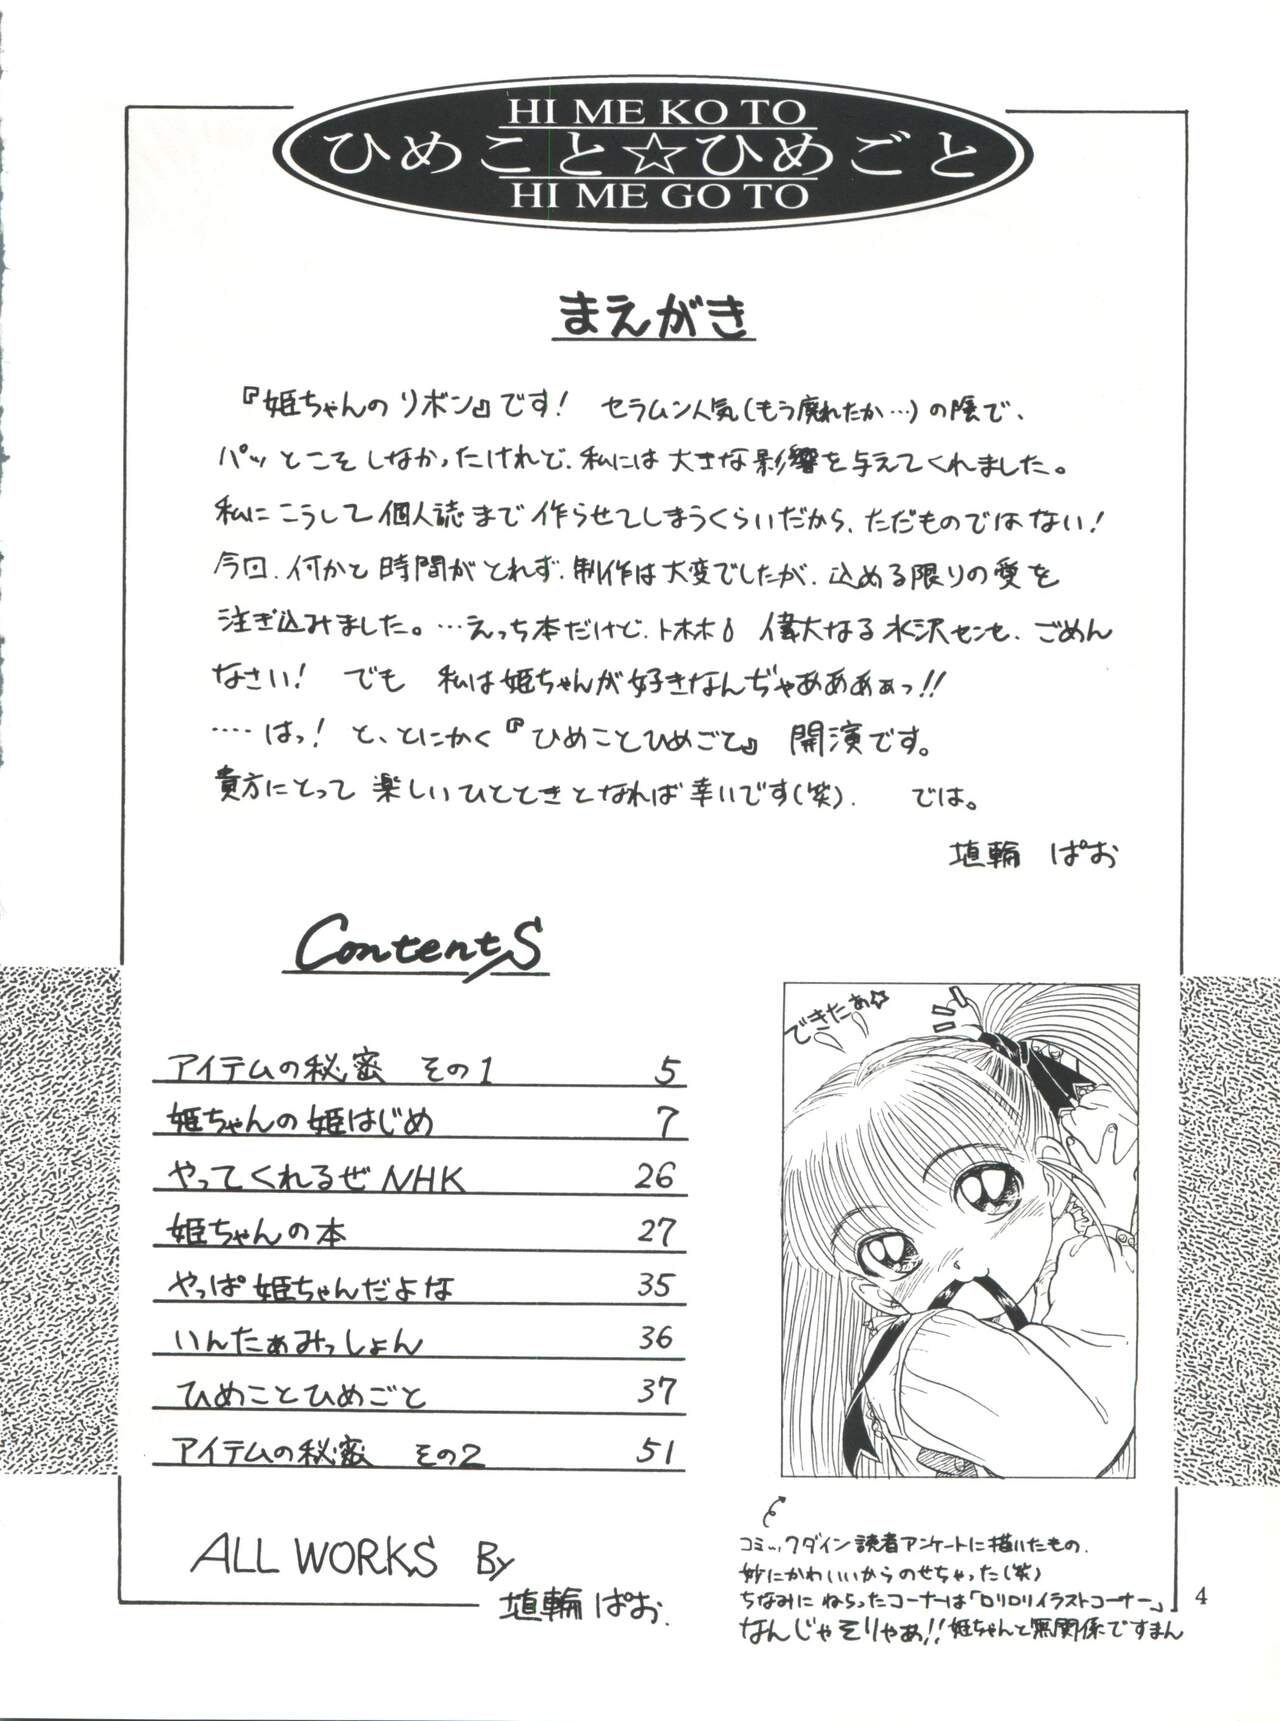 HI ME KO TO
ひめこと☆ひめごと
HI ME GO TO
まえがき
『姫ちゃんのリボン』です! セラムン人気(もう廃れたか…)の陰で、
パッとこそしなかったけれど、私には大きな影響を与えてくれました。
私にこうして個人誌まで作らせてしまうくらいだから、ただものではない!
今回、何かと時間がとれず、制作は大変でしたが、込める限りの愛を
注ぎ込みました。…えっち本だけど、トホホ 偉大なる水沢センセ、ごめん
なさい! でも 私は姫ちゃんが好きなんぢゃあああぁっ!!
‥‥はっ! と、とにかく『ひめことひめごと』 開演です。
貴方にとって楽しいひとときとなれば幸いです(笑). では。
埴輪 ぱお
Contents
アイテムの秘密 その1 5
姫ちゃんの姫はじめ 7
やってくれるぜNHK 26
姫ちゃんの本 27
やっぱ姫ちゃんだよな 35
いんたぁみっしょん 36
ひめことひめごと 37
アイテムの秘密 その2 51
ALL WORKS By
埴輪 ぱお.
できたぁ☆
コミックダイン読者アンケートに描いたもの.
妙にかわいいからのせちゃった(笑)
ちなみにねらったコーナーは「ロリロリイラストコーナー」
なんじゃそりゃあ!! 姫ちゃんと無関係ですまん
4